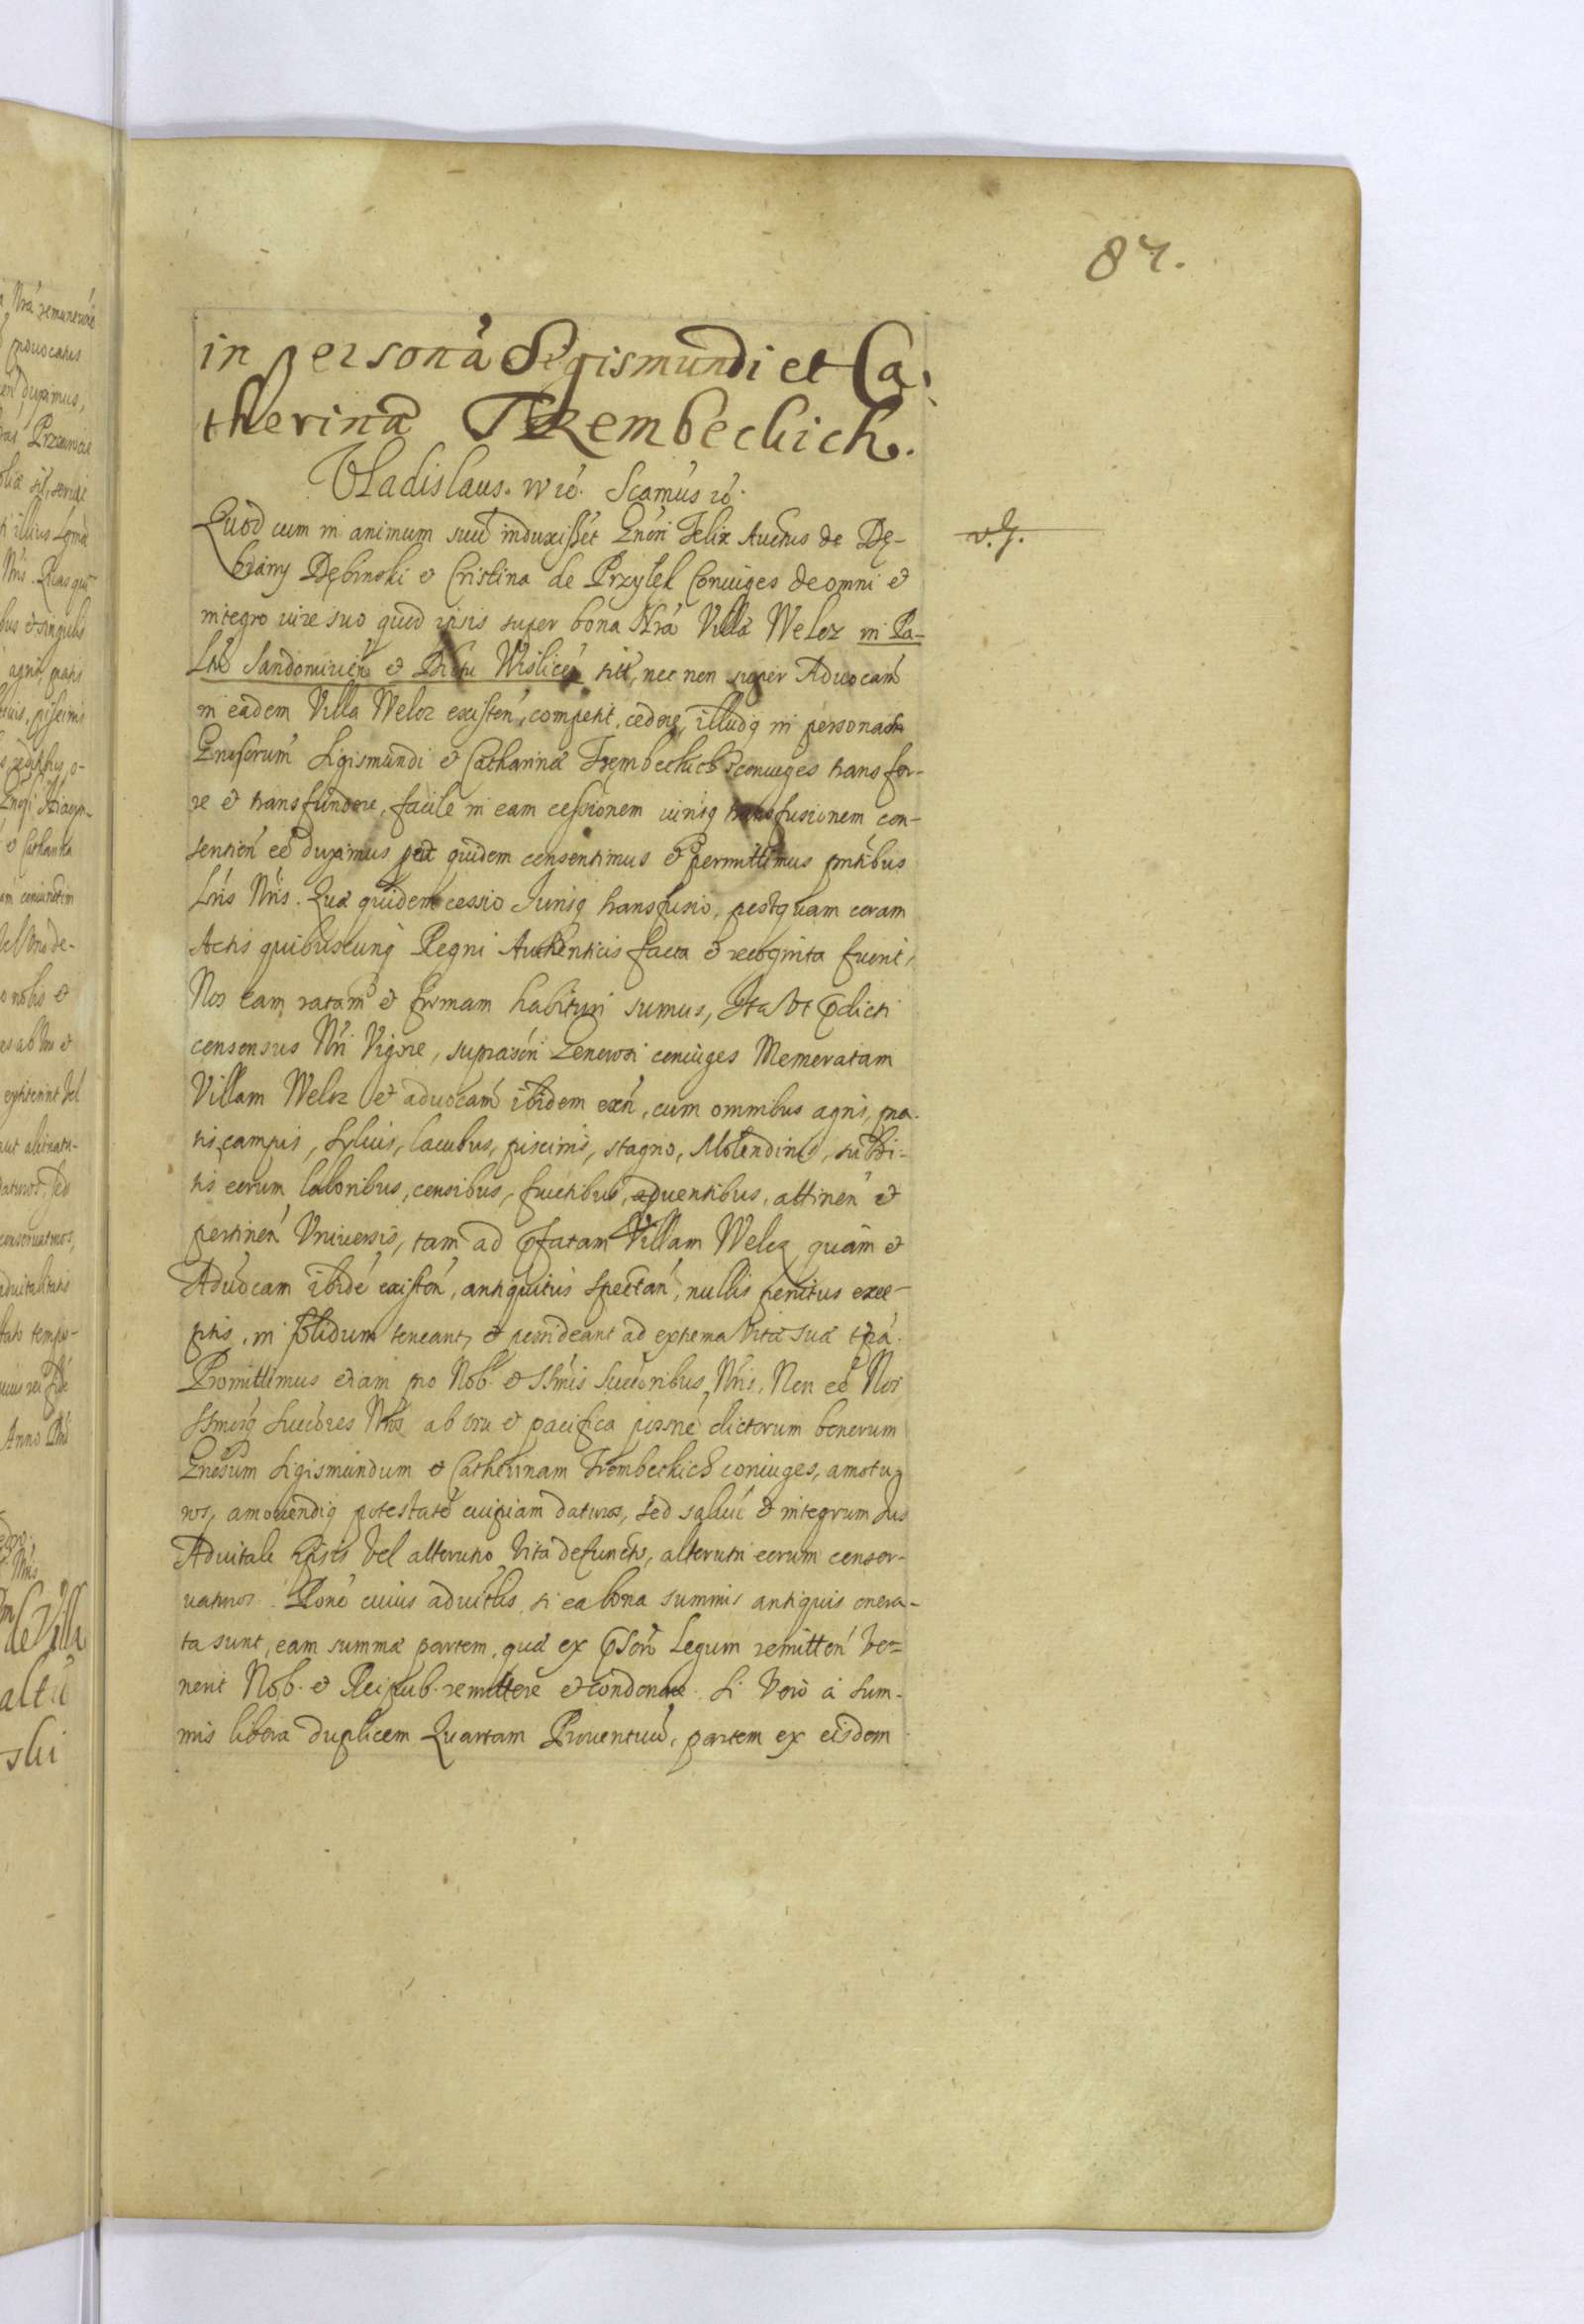 87.
in personá Sigismundi et Ca-
therinæ Trembeckich.
Vladislaus. w ró. Scamus ró.
Quod cum in animum suũ induxissét Gnõri Felix Auctus de Dę-
biany Dębinski et Cristina de Przyłek Coniuges de omni et
v. J.
integro iure suo quod ipsis super bona Nrá Villæ Welcz in Pa-
Sandomirień et Wislicén sitæ, nec non super Aduocam̃
in eadem Villa Welcz existen, competit, cedere, illudq in personas
Sigismundi et Catharinæ Trembeckich coniuges transfer-
re et transfundere, facile in eam cessionem iurisq transfusionem con-
sentień eẽ duximus quidem consentimus et permittimus pntibus
Lris Nris. Quæ quidem cessio Jurisq transfusio, postquam coram
Actis quibuscunq Regni Authenticis facta et recognita fuerit,
Nos eam ratam et firmam habituri sumus, Ita vt dicti
consensus Nri Vigore, coniuges Memoratam
Villam Welcz et aduocam̃ ibidem exń, cum omnibus agris, pra-
tis, campis, syluis, lacubus, piscinis, stagno, Molendino, subdi-
tis eorum laboribus, censibus, fructibus, attinen et
pertinen Vniuersis, tam ad fatam Villam Welcz quàm et
Aduocam ibidé existen, antiquitus spectan, nullis penitus exce-
ptis, in solidum teneant, et possideant ad extrema vitæ suæ tpá.
Promittimus etiam pro Nob. et Ssmis Succoribus Nris, Non eẽ Nos
Ssmosq Succores Nros ab vsu et pacifica possné dictorum bonorum
Sigismundum et Catherinam Trembeckich coniuges, amotu-
ros, amouendiq potestatẽ cuipiam daturos, sed saluũ et integrum Jus
Aduitale ipsis vel alterutro vita defuncto, alterutri eorum conser-
uaturos. cuius aduitlis, si ea bona summis antiquis onera-
ta sunt, eam summæ partem, quæ ex Legum remitten ve-
nerit Nob. et Reipub. remittere et condonare. Si verò à sum-
mis libera duplicem Quartam Prouentuũ, partem ex eisdem